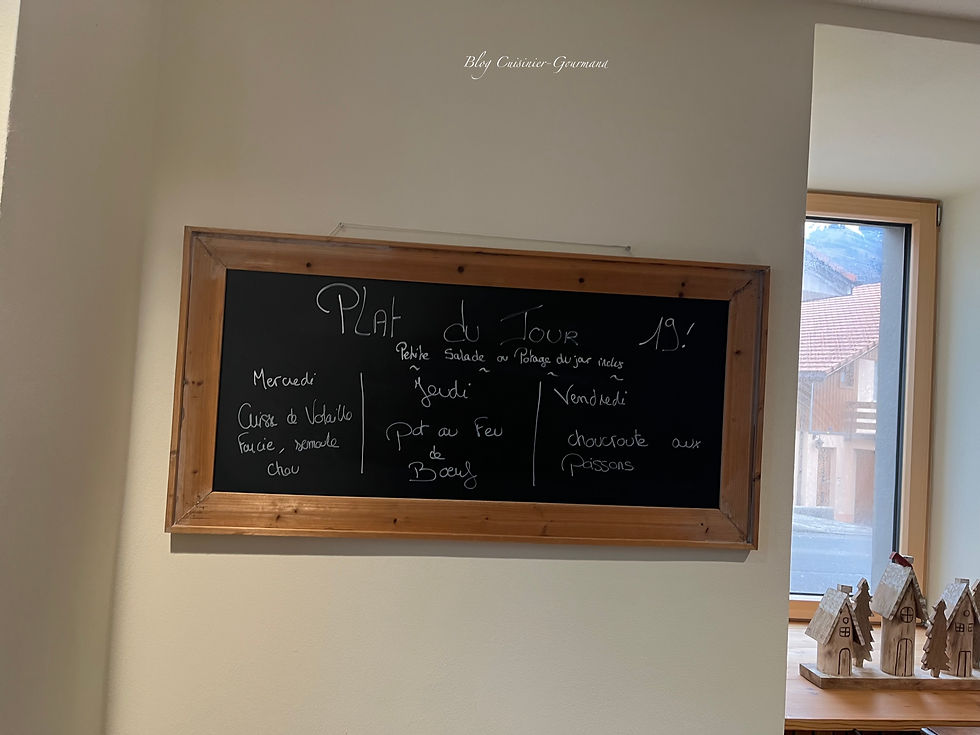 Blog Cuisinier-Gourmand
Plat du Jour 19!
Petite Salade ou Potage du jour inclus
Mercredi
Cuisse de Volaille
Farcie, semoule
Chou
Jeudi
Pot au Feu
de
Boeuf
Vendredi
choucroute aux
Poissons